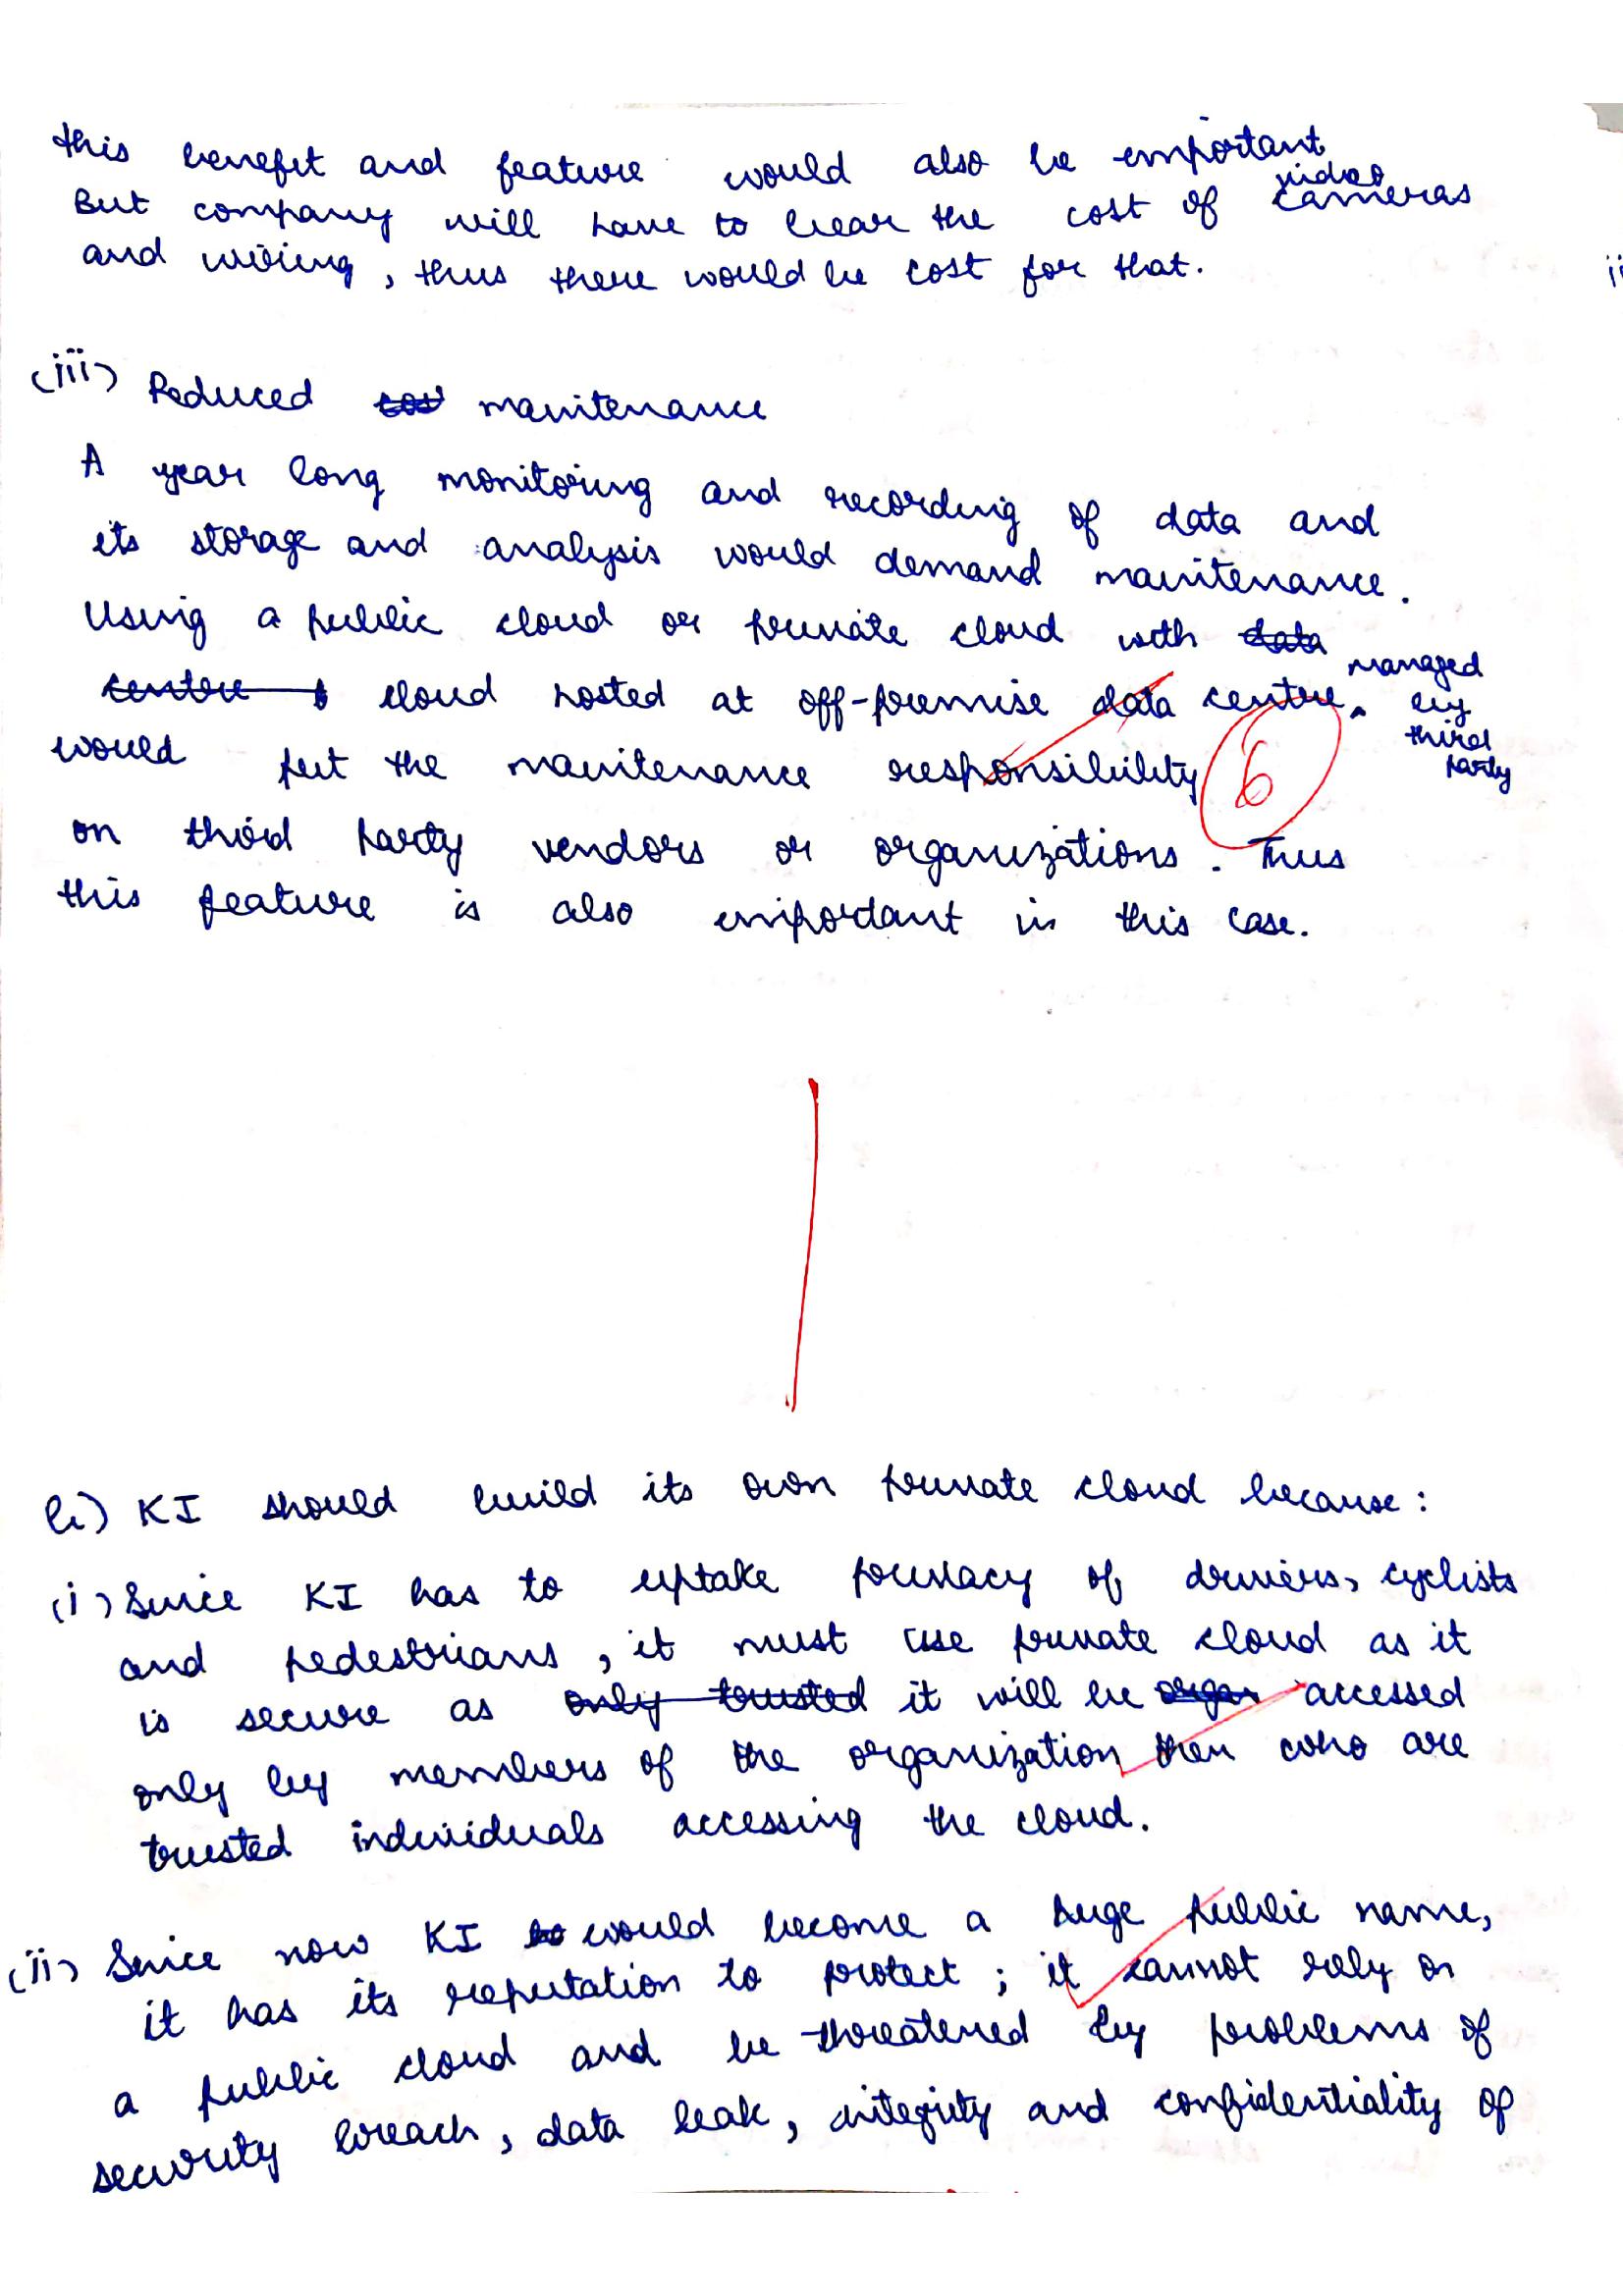 this benefit and feature would also be important
But company will have to bear the cost of video cameras
and wiring, thus there would be cost for that.
(iii) Reduced maintenance
A year long monitoring and recording of data and
its storage and analysis would demand maintenance.
Using a public cloud or private cloud with data
centre cloud hosted at off-premise data centre, managed by third party
would put the maintenance responsibility 6
on third party vendors or organizations. Thus
this feature is also important in this case.
b) KI should build its own private cloud because:
(i) Since KI has to uptake privacy of drivers, cyclists
and pedestrians, it must use private cloud as it
is secure as only trusted it will be organ accessed
only by members of the organization then who are
trusted individuals accessing the cloud.
(ii) Since now KI would become a huge public name,
it has its reputation to protect; it cannot rely on
a public cloud and be threatened by problems of
security breach, data leak, integrity and confidentiality of